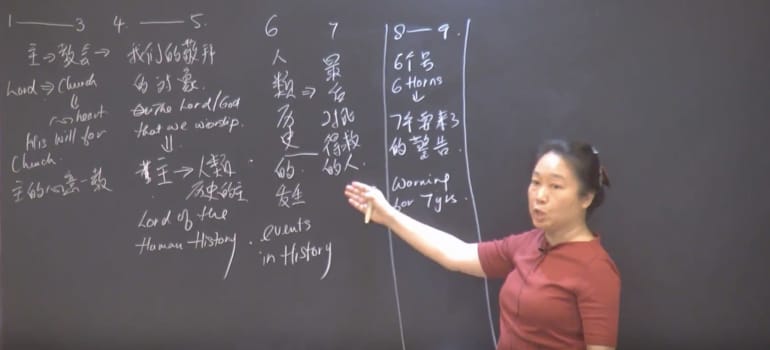 1 —— 3
主→教会→
Lord ⇒ Church
⇓
heart
His will for
Church.
主的心意-教
4. —— 5.
我们的敬拜
的对象.
the Lord/God
that we worship.
⇓
主→人类
历史的主
Lord of the
Human History.
6
人
类⇒
历
史
的.
发生
events
in History
7
最
后
得救
的人.
8—9.
6个号
6 Horns
↓
7年要来了
的警告.
Warning
for 7yrs.